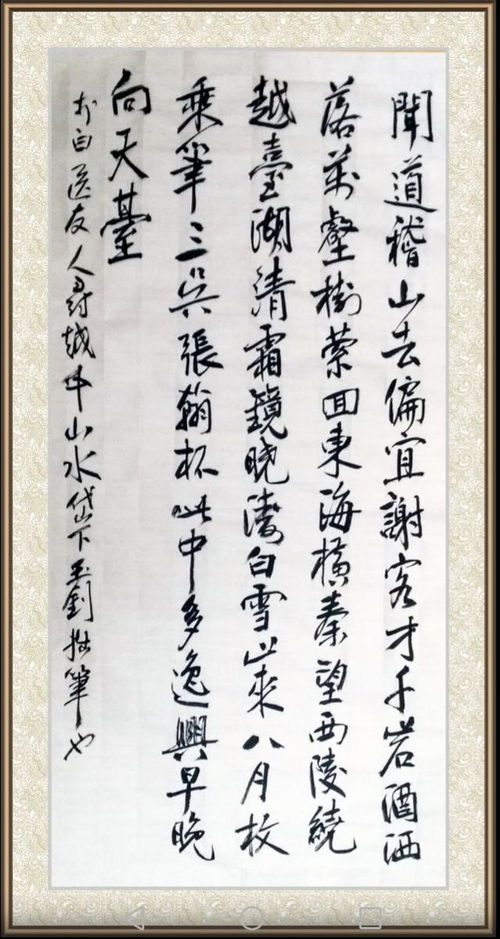 聞道稽山去偏宜謝客才千岩酒洒
落萬壑樹縈回東海橫秦望西陵繞
越臺湖清霜鏡晓濤白雪山來八月枚
乘筆三吳張翰杯此中多逸興早晚
向天臺
李白送友人尋越中山水岱下拙筆也